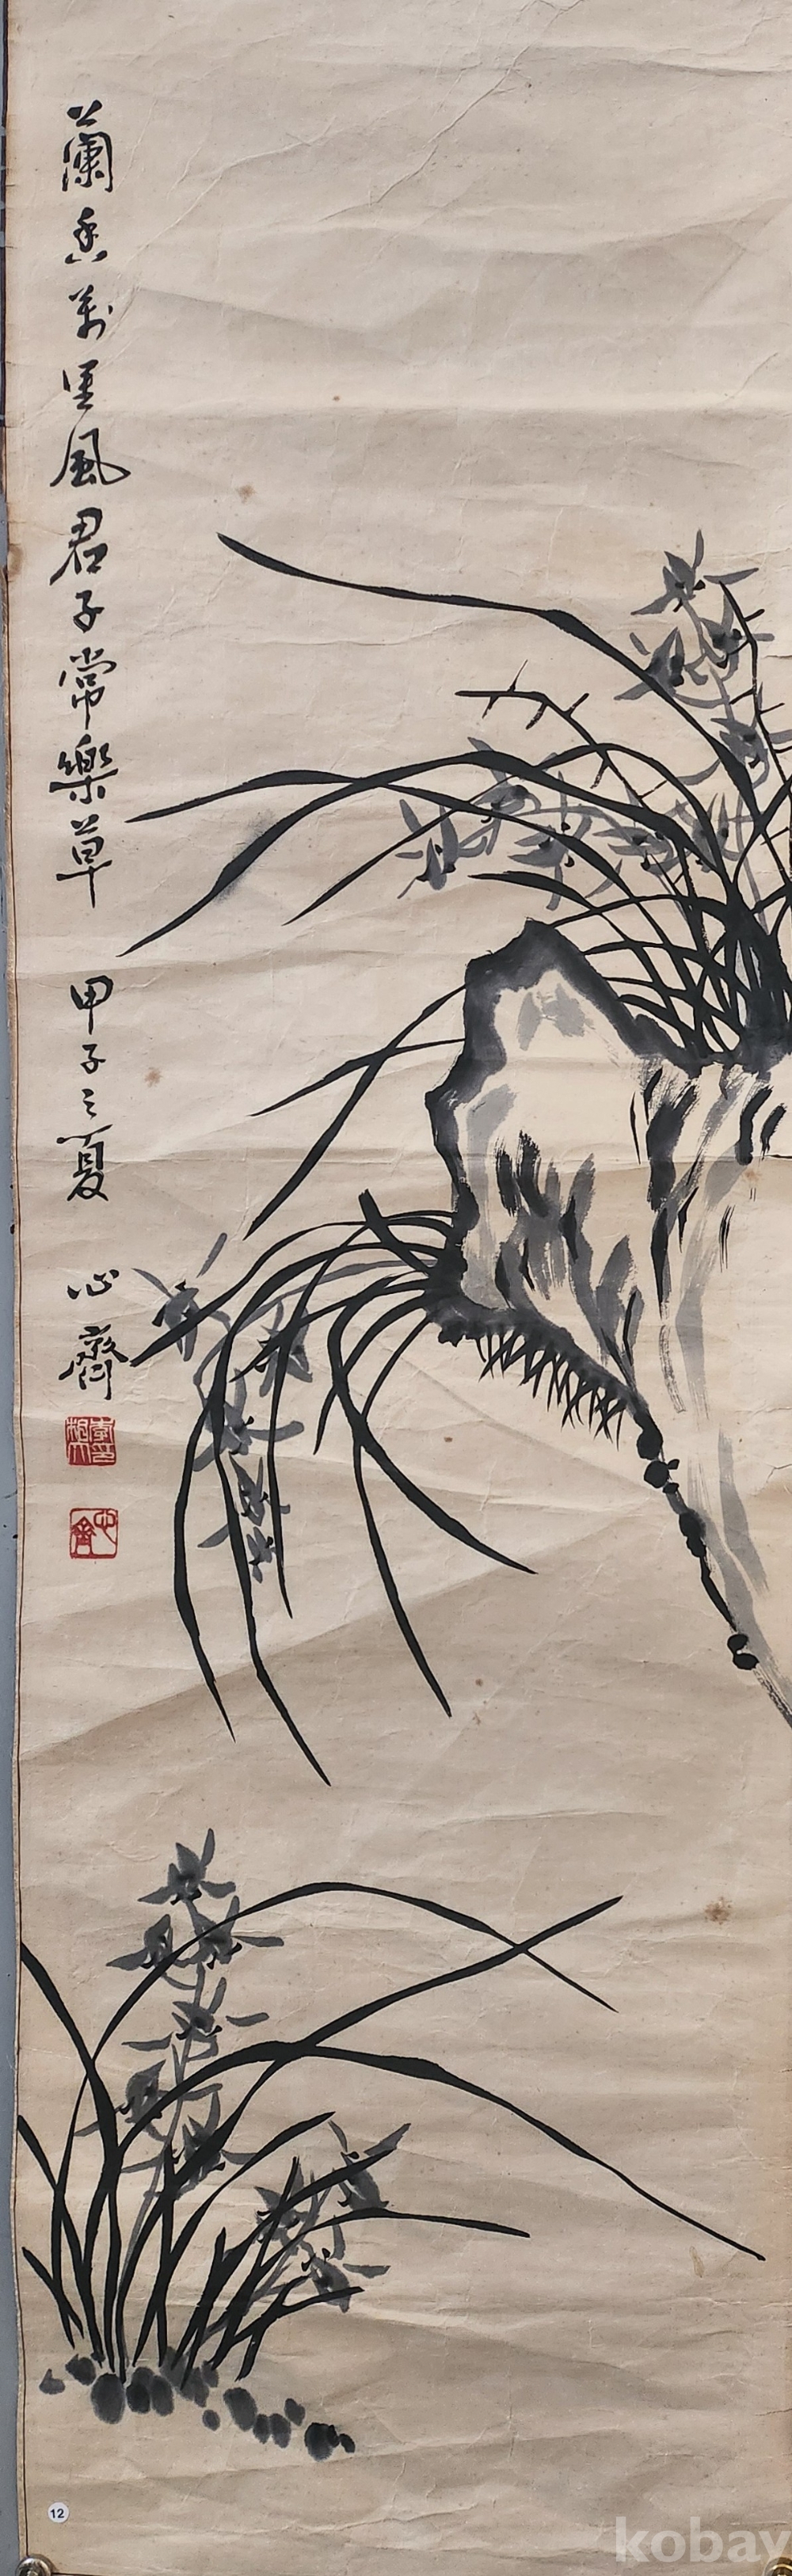 蘭香萬里風君子常樂草
甲子之夏
心齋
心齋
12
kobay